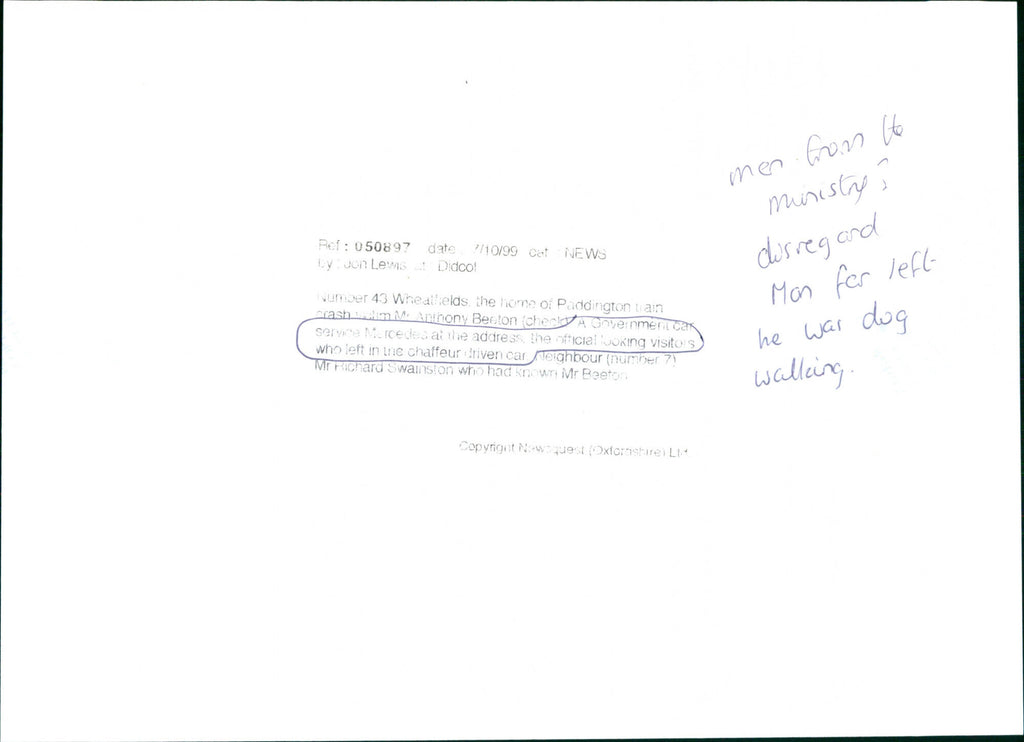 men from the
ministry?
disregard
Man far left
he was dog
walking.
Ref : 050897 date : 7/10/99 cat : NEWS
by : Jon Lewis at : Didcot
Number 43 Wheatfields, the home of Paddington train
crash victim Mr Anthony Beeton (check) A Government car
service Mercedes at the address, the official looking visitors
who left in the chaffeur driven car, Neighbour (number 7)
Mr Richard Swainston who had known Mr Beeton
Copyright Newsquest (Oxfordshire) Ltd.